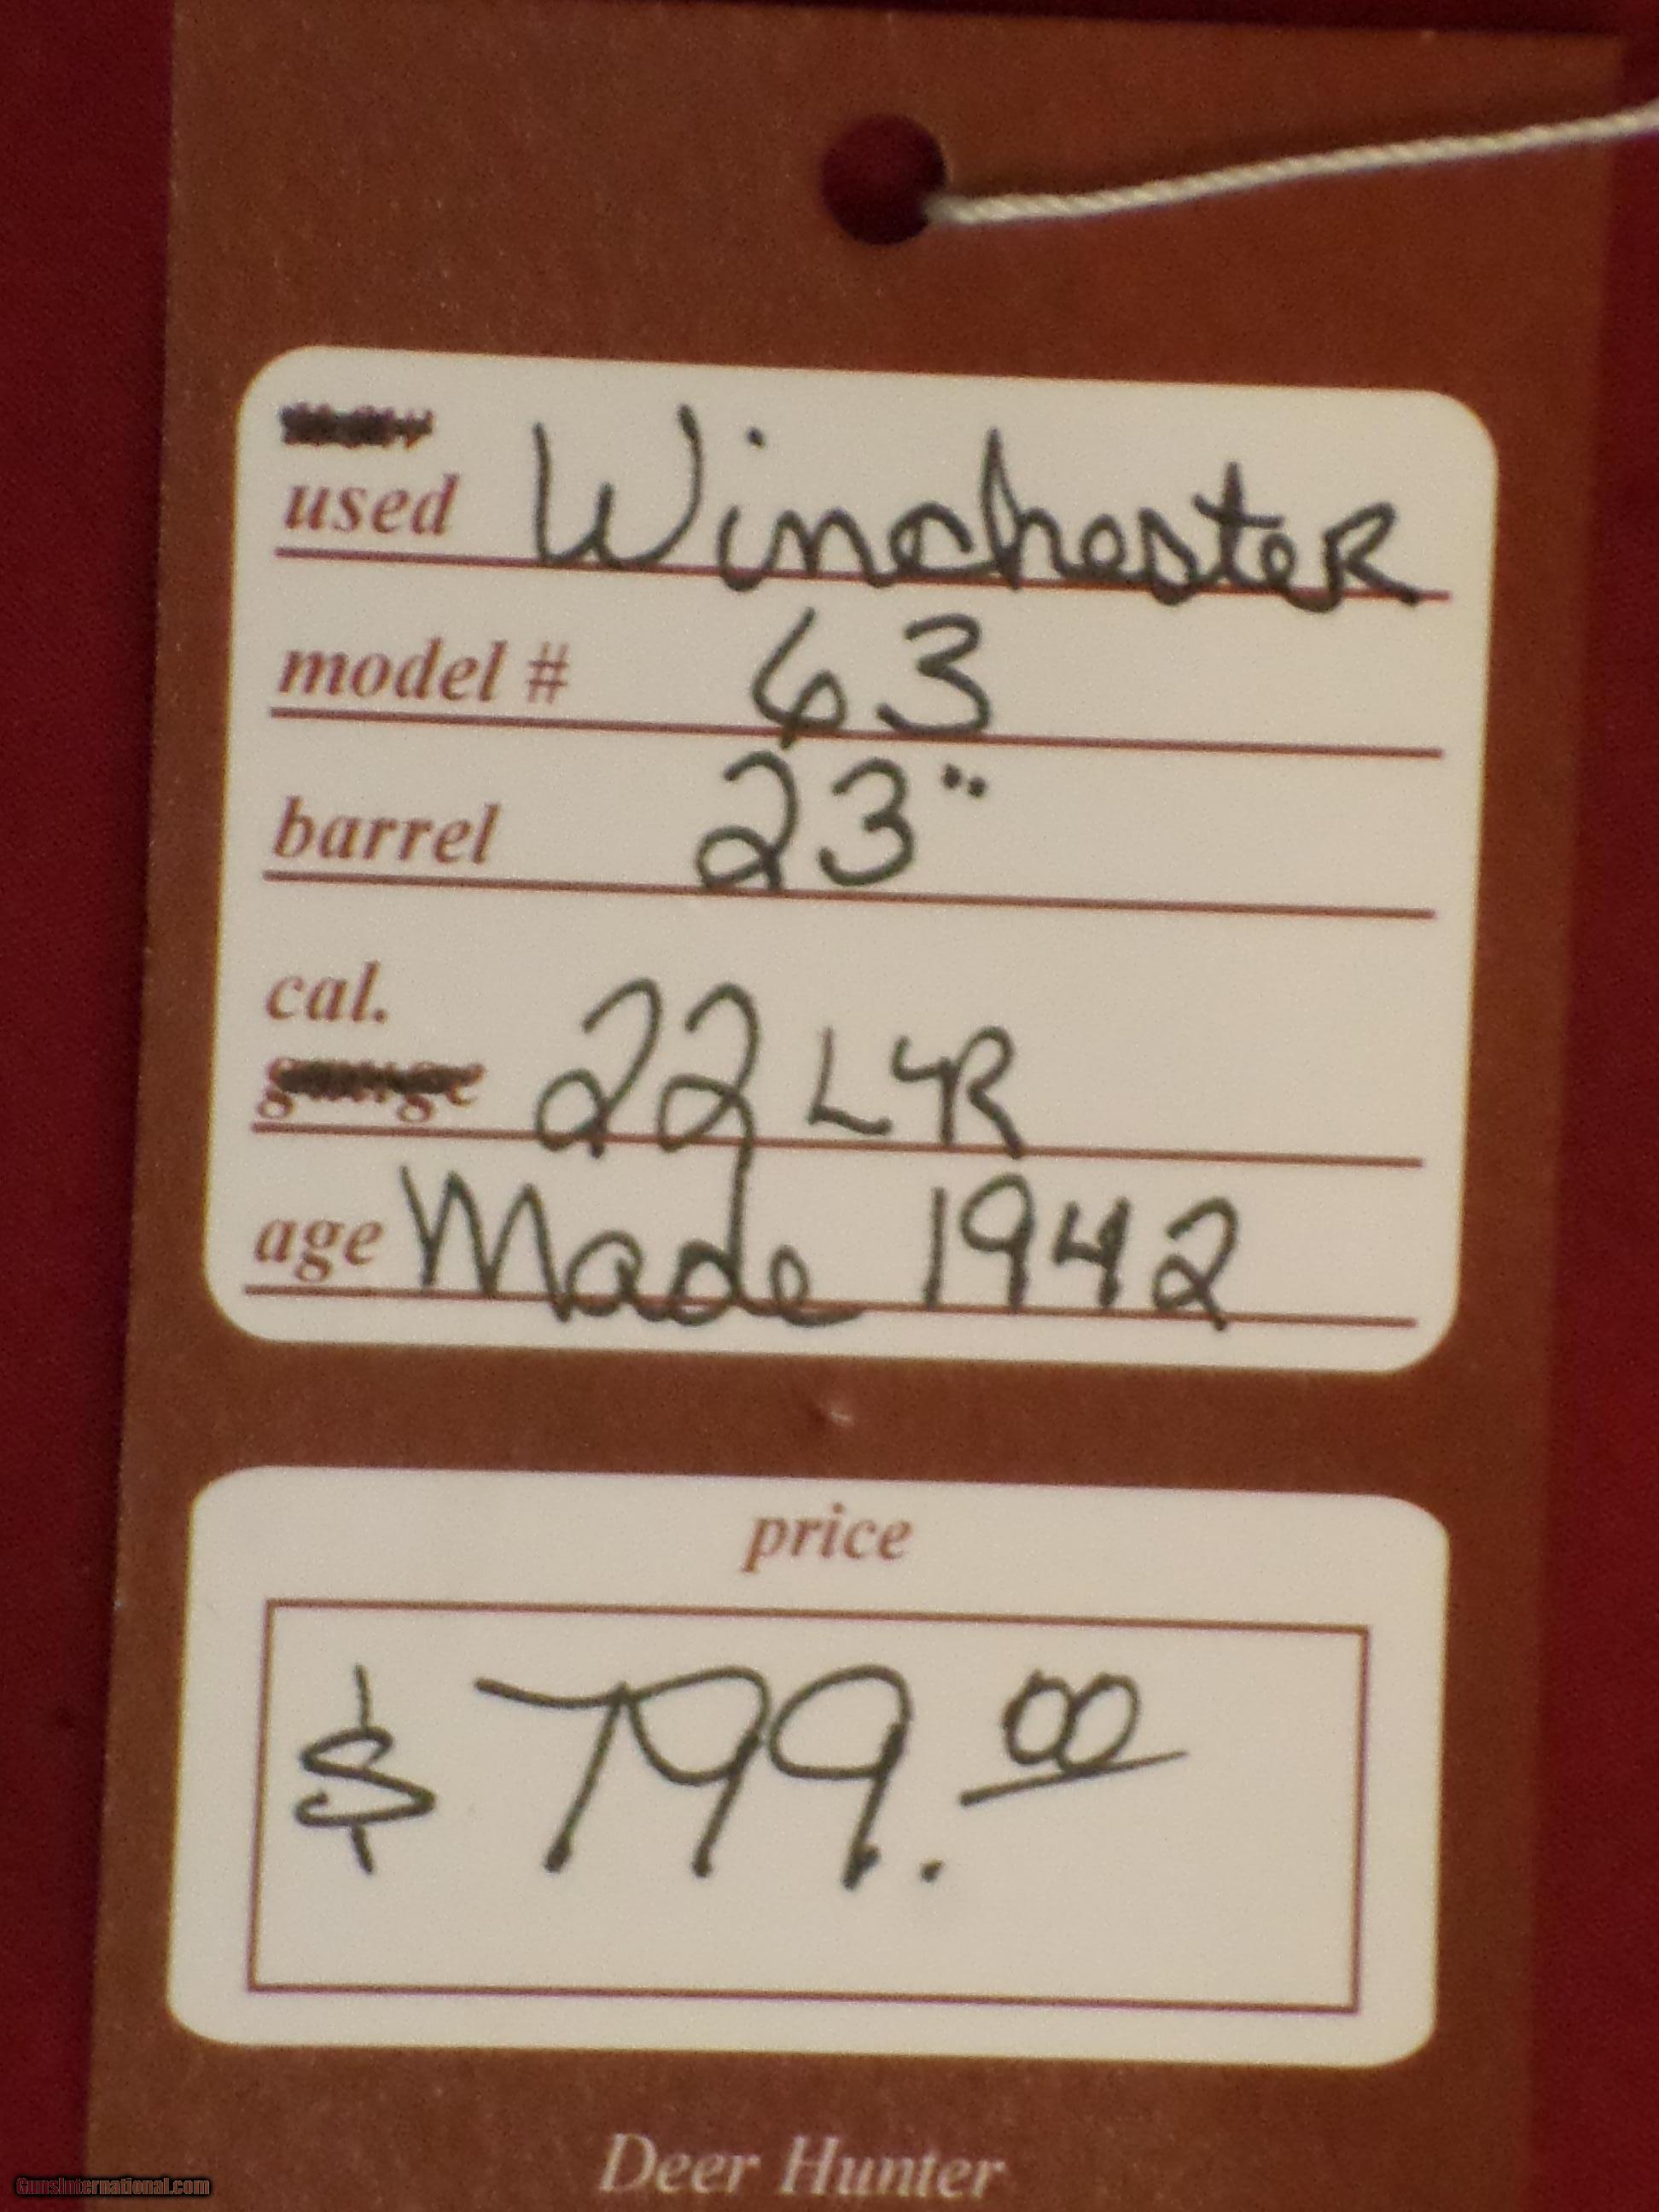 used Winchester
model # 63
barrel 23"
cal.
gauge 22 LR
age Made 1942
price
$ 799.00
Deer Hunter
GunsInternational.com